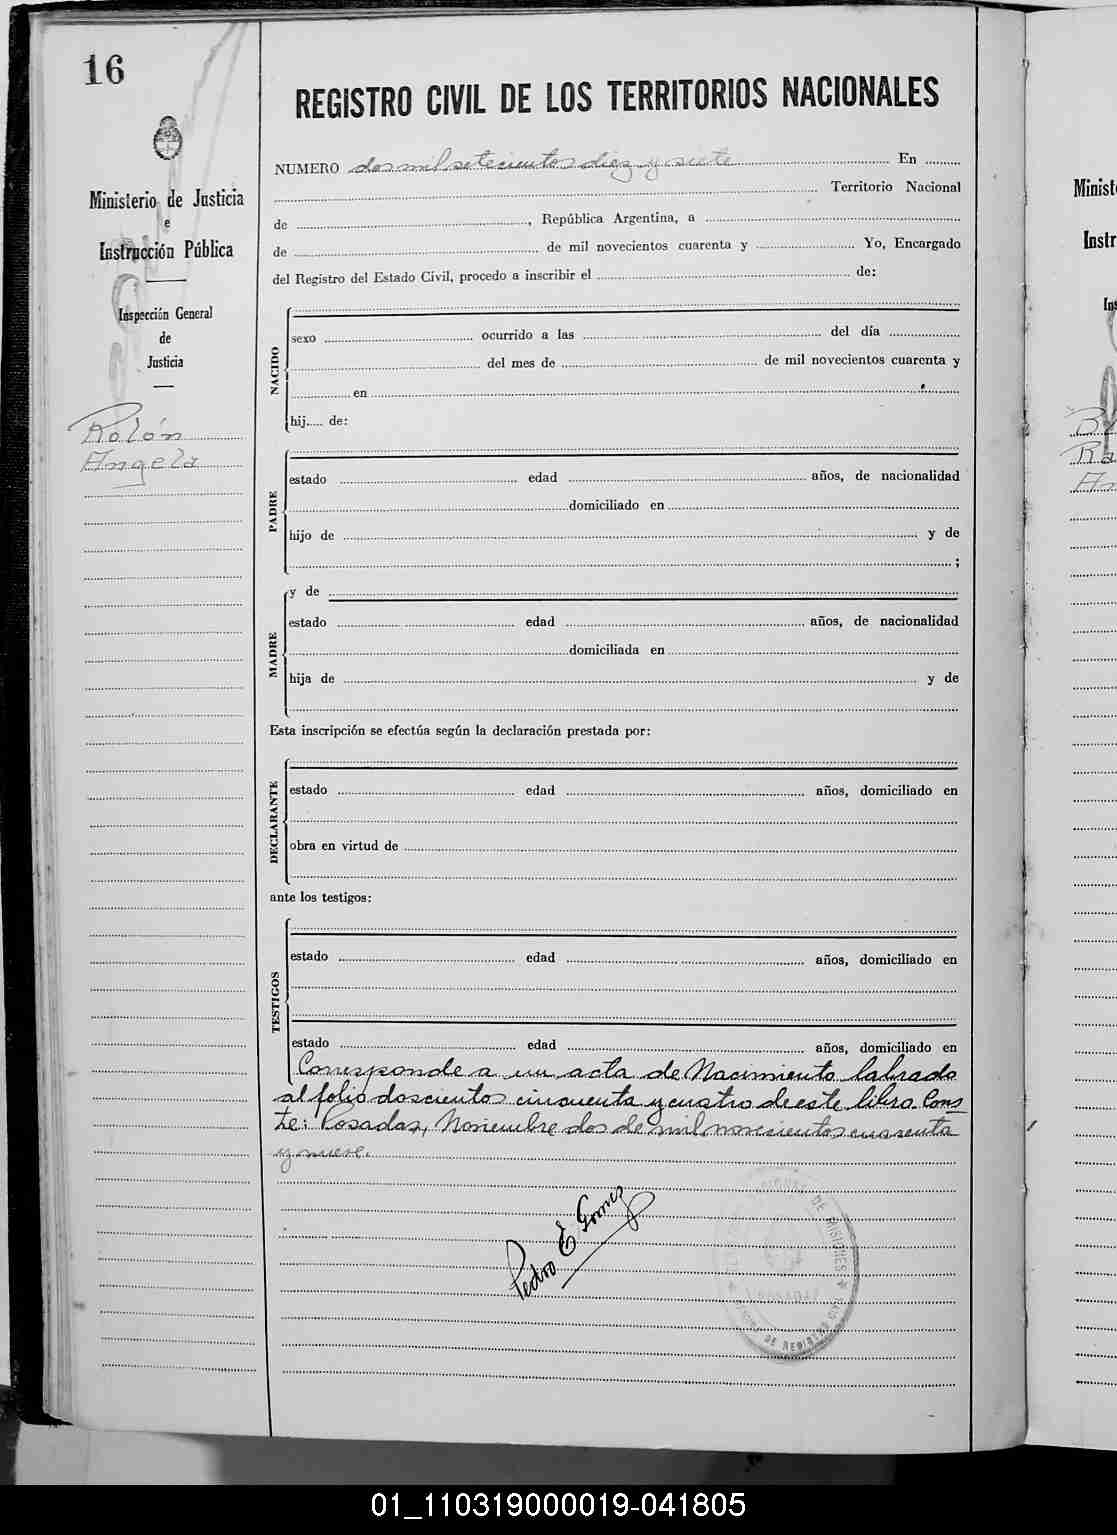 16
Ministerio de Justicia
e
Instrucción Pública
Inspección General
de
Justicia
Rolón
Angela
REGISTRO CIVIL DE LOS TERRITORIOS NACIONALES
NUMERO dos mil setecientos diez y siete En
Territorio Nacional
de , República Argentina, a
de de mil novecientos cuarenta y Yo, Encargado
del Registro del Estado Civil, procedo a inscribir el de:
NACIDO
sexo ocurrido a las del día
del mes de de mil novecientos cuarenta y
en
hij..... de:
PADRE
estado edad años, de nacionalidad
domiciliado en
hijo de y de
;
MADRE
y de
estado edad años, de nacionalidad
domiciliada en
hija de y de
Esta inscripción se efectúa según la declaración prestada por:
DECLARANTE
estado edad años, domiciliado en
obra en virtud de
ante los testigos:
TESTIGOS
estado edad años, domiciliado en
estado edad años, domiciliado en
Corresponde a un acta de Nacimiento labrado
al folio doscientos cincuenta y cuatro de este libro. Cons-
te: Posadas, Noviembre dos de mil novecientos cuarenta
y nueve.
Pedro E Gomez
DE MISIONES
DE REGISTRO
Minist
Instr
Ins
Ra
01_110319000019-041805